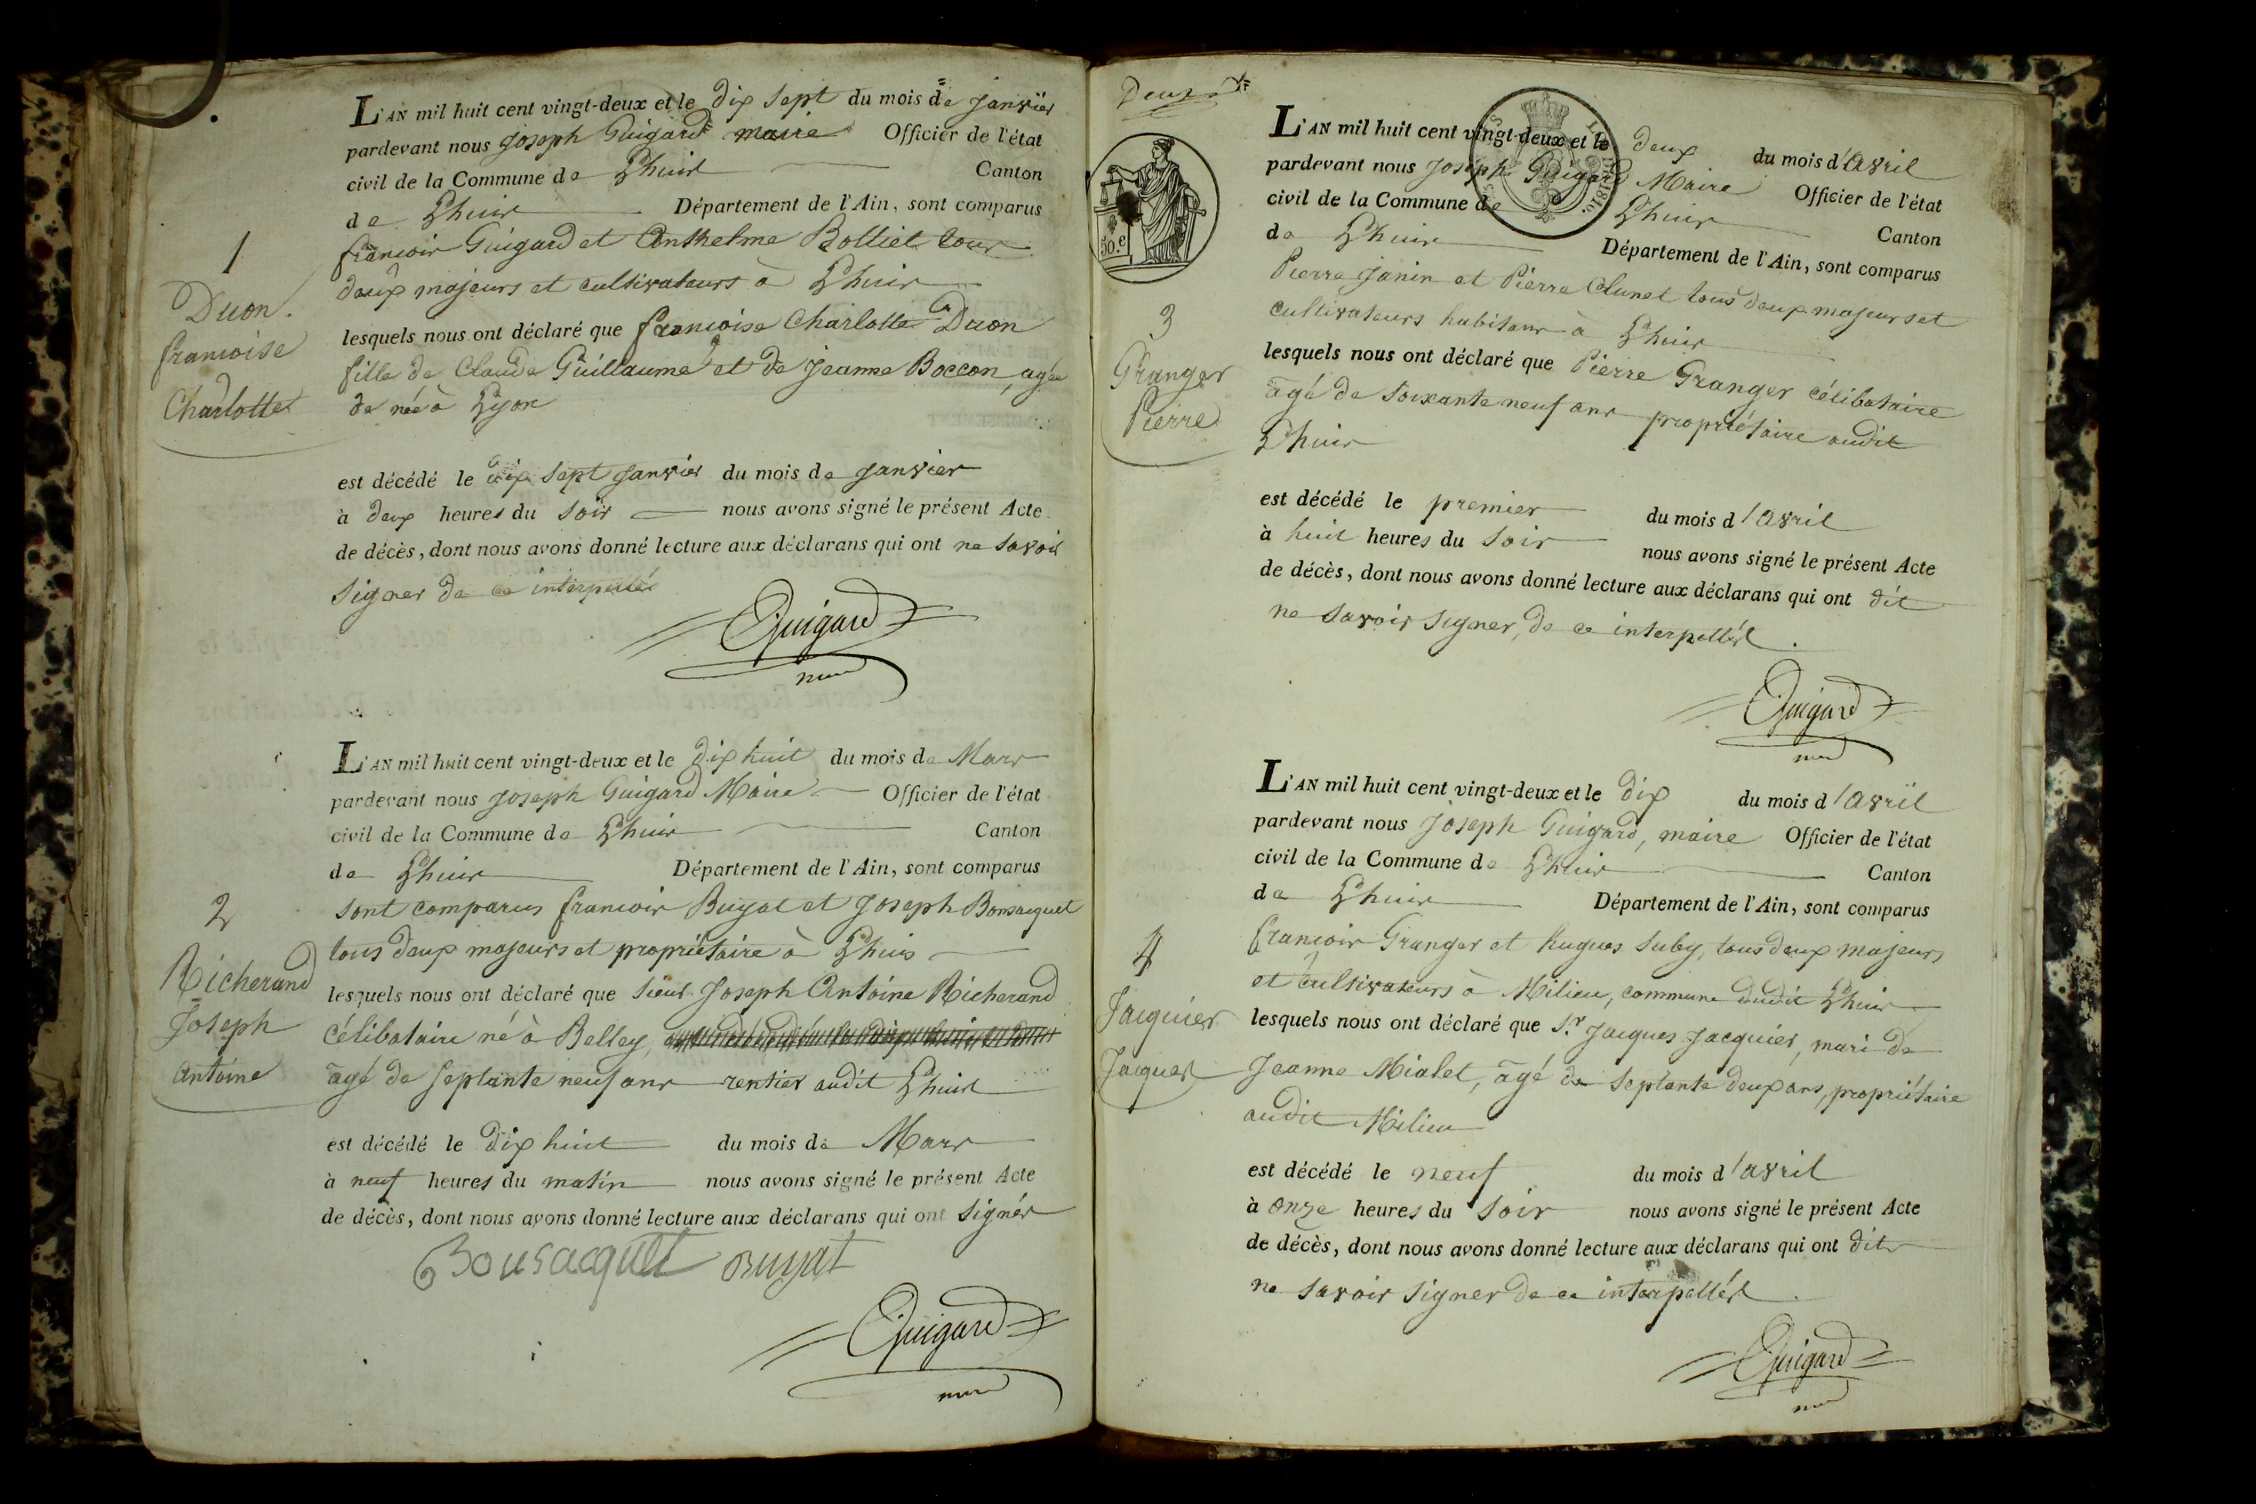 L'AN mil huit cent vingt-deux et le dix sept du mois de janvier
pardevant nous joseph Guigard maire Officier de l'état
civil de la Commune de Lhuis Canton
de Lhuis Département de l'Ain, sont comparus
françois Guigard et Anthelme Bolliet tous
deux majeurs et cultivateurs à Lhuis
1
Duon
francoise
Charlotte
lesquels nous ont déclaré que francoise Charlotte Duon
fille de Claude Guillaume et de Jeanne Boccon, agée
de née à Lyon
est décédé le dix sept janvier du mois de janvier
à deux heures du soir nous avons signé le présent Acte
de décès, dont nous avons donné lecture aux déclarans qui ont ne savoir
signer de ce interpellés
Guigard
L'AN mil huit cent vingt-deux et le dix huit du mois de Mars
pardevant nous joseph Guigard Maire Officier de l'état
civil de la Commune de Lhuis Canton
de Lhuis Département de l'Ain, sont comparus
sont comparus francois Buyat et Joseph Bonsacquet
tous deux majeurs et propriétaire à Lhuis
2
Richerand
Joseph
Antoine
lesquels nous ont déclaré que Sieur Joseph Antoine Richerand
célibataire né à Belley,
âgé de septante neuf ans rentier audit Lhuis
est décédé le dix huit du mois de Mars
à neuf heures du matin nous avons signé le présent Acte
de décès, dont nous avons donné lecture aux déclarans qui ont signés
Bousacquet Buyat
Guigard
Deux
50.c
L'AN mil huit cent vingt-deux et le deux du mois d'avril
pardevant nous Joseph Guigard Maire Officier de l'état
civil de la Commune de Lhuis Canton
de Lhuis Département de l'Ain, sont comparus
Pierre Janin et Pierre Clunet tous deux majeurs et
cultivateurs habitans à Lhuis
3
Granger
Pierre
lesquels nous ont déclaré que Pierre Granger célibataire
âgé de soixante neuf ans propriétaire audit
Lhuis
est décédé le premier du mois d'avril
à huit heures du soir nous avons signé le présent Acte
de décès, dont nous avons donné lecture aux déclarans qui ont dit
ne savoir signer, de ce interpellés
Guigard
L'AN mil huit cent vingt-deux et le dix du mois d'avril
pardevant nous Joseph Guigard, maire Officier de l'état
civil de la Commune de Lhuis Canton
de Lhuis Département de l'Ain, sont comparus
francois Granger et hugues Suby, tous deux majeurs
et cultivateurs à Milieu, commune dudit Lhuis
4
Jacquier
Jacques
lesquels nous ont déclaré que S.r Jacques Jacquier, mari de
Jeanne Mialet, âgé de septante deux ans, propriétaire
audit Milieu
est décédé le neuf du mois d'avril
à onze heures du soir nous avons signé le présent Acte
de décès, dont nous avons donné lecture aux déclarans qui ont dit
ne savoir signer de ce interpellés
Guigard